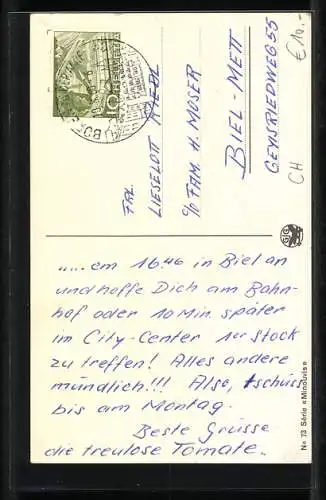 „... em 16⁴⁶ in Biel an
und hoffe Dich am Bahn-
hof oder 10 Min. später
im City-Center 1er Stock
zu treffen! Alles andere
mündlich!!! Also, tschüss
bis am Montag.
Beste Grüsse
die treulose Tomate.
FRL.
LIESELOTT RIEDL
c/o FAM. H. MOSER
BIEL-METT
GEYISRIEDWEG 55
€ 10.-
CH
No 73 Série «Minouvis»
10
HELVETIA